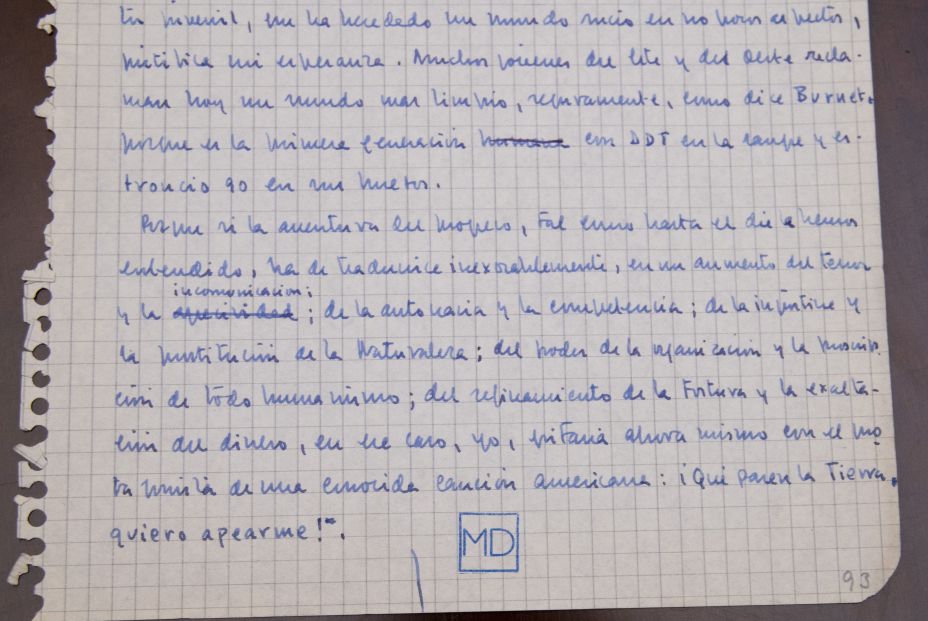 tu juvenil, que ha heredado un mundo sucio en no pocos aspectos,
justifica mi esperanza. Muchos jóvenes del Este y del Oeste recla-
man hoy un mundo más limpio, seguramente, como dice Burnet,
porque es la primera generación humana con DDT en la sangre y es-
troncio 90 en sus huesos.
Porque si la aventura del progreso, tal como hasta el día la hemos
entendido, ha de traducirse inexorablemente, en un aumento del terror
incomunicación;
y la ; de la autocracia y la ; de la injusticia y
la prostitución de la Naturaleza; del poder de la organización y la proscrip-
ción de todo humanismo; del refinamiento de la tortura y la exalta-
ción del dinero, en ese caso, yo, gritaría ahora mismo con el pro
tagonista de una conocida canción americana: ¡Que paren la Tierra,
quiero apearme!".
MD
93